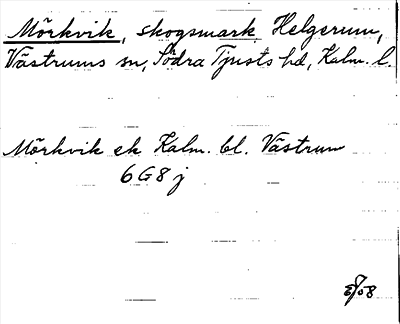 Mörkvik, skogsmark, Helgerum,
Västrums sn, Södra Tjusts hd, Kalm. l.
Mörkvik ek Kalm. bl. Västrum
6G8j